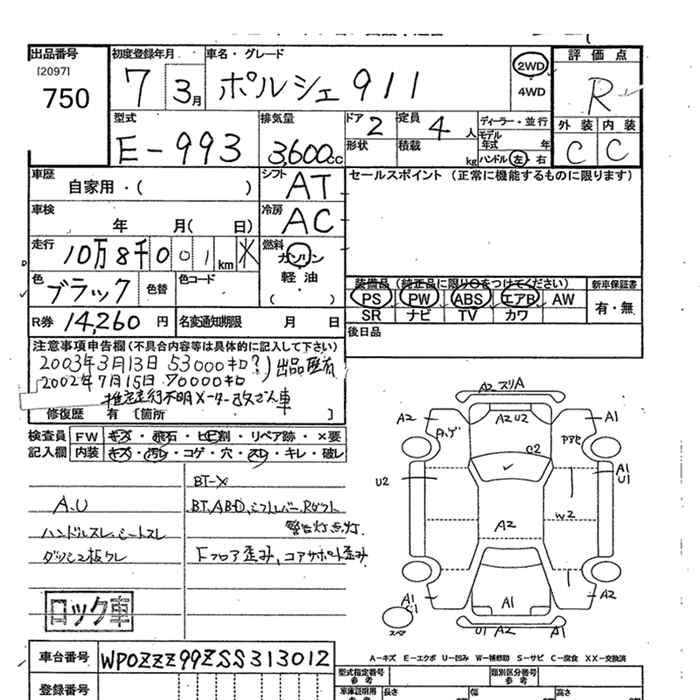 出品番号
[2097]
750
初度登録年月
7 3月
車名・グレード
ポルシェ 911
2WD
4WD
評価点
R
外装 内装
C C
型式
E-993
排気量
3,600cc
ドア 2
形状
定員 4 人
積載 kg
ディーラー・並行
モデル年式 年
ハンドル 左・右
車歴
自家用・( )
シフト AT
冷房 AC
セールスポイント (正常に機能するものに限ります)
車検
年 月( 日)
走行 10万8千001km
燃料
ガソリン
軽油
( )
色 ブラック 色替
色コード
装備品 (純正品に限り○をつけてください)
PS PW ABS エアB AW
SR ナビ TV カワ
新車保証書
有・無
R券 14,260円
名変通知期限 月 日
後日品
注意事項申告欄(不具合内容等は具体的に記入して下さい)
2003年3月13日 53000キロ
2002年7月15日 70000キロ
修復歴 有 [箇所 ]
検査員記入欄
FW キズ・飛石・ヒビ割・リペア跡・×要
内装 キズ・汚レ・コゲ・穴・スレ・キレ・破レ
BT-X
A.U
ハンドルスレ、シートスレ
警告灯点灯
Fフロア歪み、コアサポート歪み
ロック車
A2 スリA
A2
A2 U2
A1
G2
U2
A1
U1
W2
A2
A1
A1
A2
スペア
U1 A2
A−キズ E−エクボ U−凹み W−補修跡 S−サビ C−腐食 XX−交換済
車台番号 WP0ZZZ99ZSS313012
登録番号
型式指定番号
類別区分番号
車庫証明用参考
長さ
幅
高さ